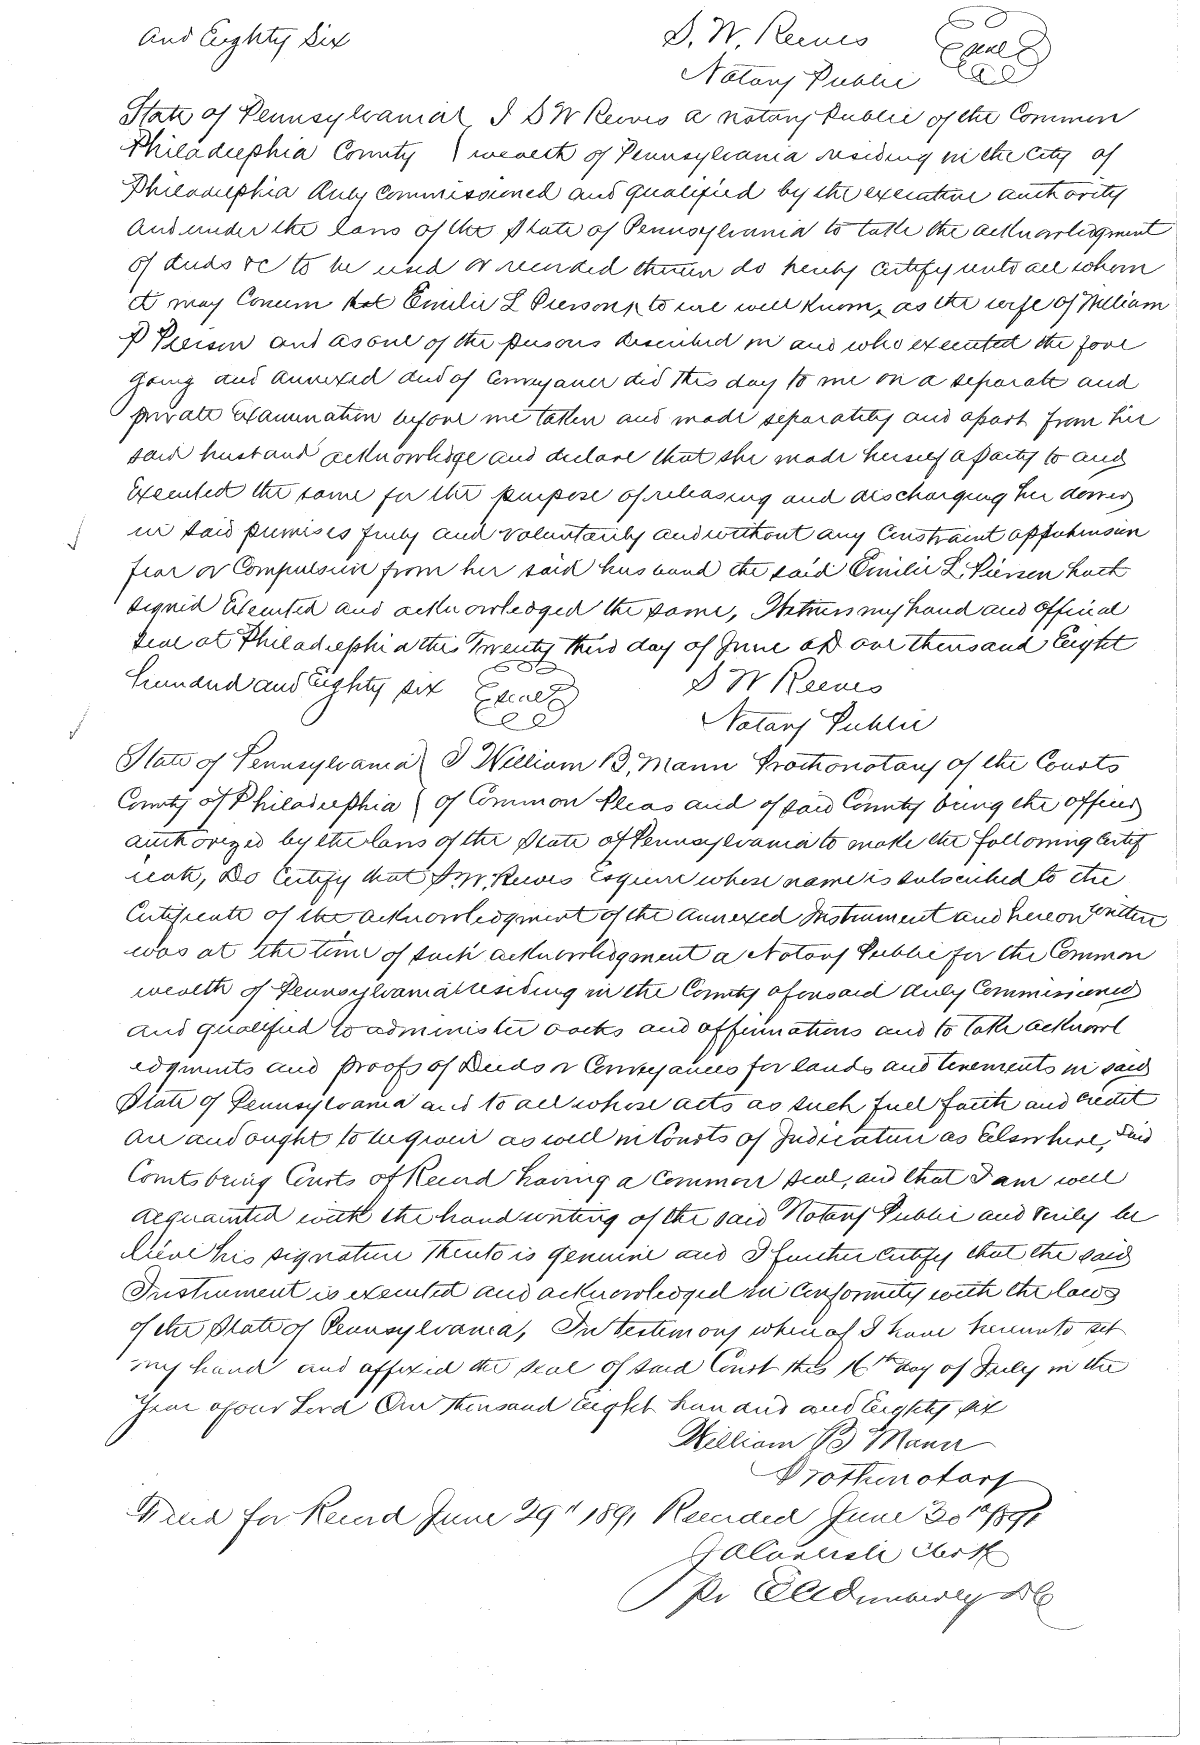 and Eighty Six S. W. Reeves Seal
Notary Public
State of Pennsylvania } I S W Reeves a notary Public of the Common
Philadelphia County } wealth of Pennsylvania residing in the City of
Philadelphia duly commissioned and qualified by the executive authority
and under the laws of the State of Pennsylvania to take the acknowledgment
of deeds &c to be used or recorded therein do hereby certify unto all whom
it may concern that Emilie L Pierson, to me well known, as the wife of William
P Pierson and as one of the persons described in and who executed the fore
going and annexed deed of Conveyance did this day to me on a separate and
private Examination before me taken and made separately and apart from her
said husband acknowledge and declare that she made herself a party to and
Executed the same for the purpose of releasing and discharging her dower
in said premises freely and voluntarily and without any Constraint apprehension
fear or Compulsion from her said husband the said Emilie L. Pierson hath
signed Executed and acknowledged the same, Witness my hand and official
Seal at Philadelphia this Twenty third day of June AD one thousand Eight
hundred and Eighty six Seal S W Reeves
Notary Public
State of Pennsylvania } I William B. Mann Prothonotary of the Courts
County of Philadelphia } of Common Pleas and of said County being the officer
authorized by the laws of the State of Pennsylvania to make the following Certif
icate, Do Certify that S. W. Reeves Esquire whose name is subscribed to the
Certificate of the acknowledgment of the annexed Instrument and hereon written
was at the time of such acknowledgment a Notary Public for the Common
wealth of Pennsylvania residing in the County aforesaid duly Commissioned
and qualified to administer oaths and affirmations and to take acknowl
edgments and proofs of Deeds or Conveyances for lands and tenements in said
State of Pennsylvania and to all whose acts as such full faith and credit
are and ought to be given as well in Courts of Judicature as Elsewhere, said
Courts being Courts of Record having a Common seal, and that I am well
acquainted with the hand writing of the said Notary Public and verily be
lieve his signature thereto is genuine and I further certify that the said
Instrument is executed and acknowledged in conformity with the laws
of the State of Pennsylvania, In testimony whereof I have hereunto set
my hand and affixed the seal of said Court this 16th day of July in the
Year of our Lord One thousand Eight hundred and Eighty six
William B Mann
Prothonotary
Filed for Record June 29" 1891 Recorded June 30th 1891
Clerk
Pr DC